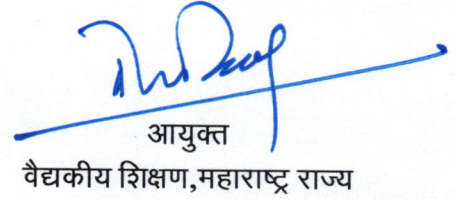 आयुक्त
वैद्यकीय शिक्षण,महाराष्ट्र राज्य